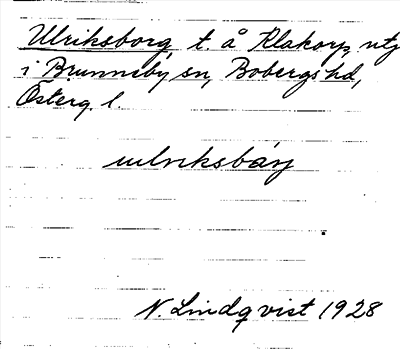 Ulriksborg t. å Klakorp, utj
i Brunneby sn, Bobergs hd,
Österg. l.
ulriksbårj
N. Lindqvist 1928